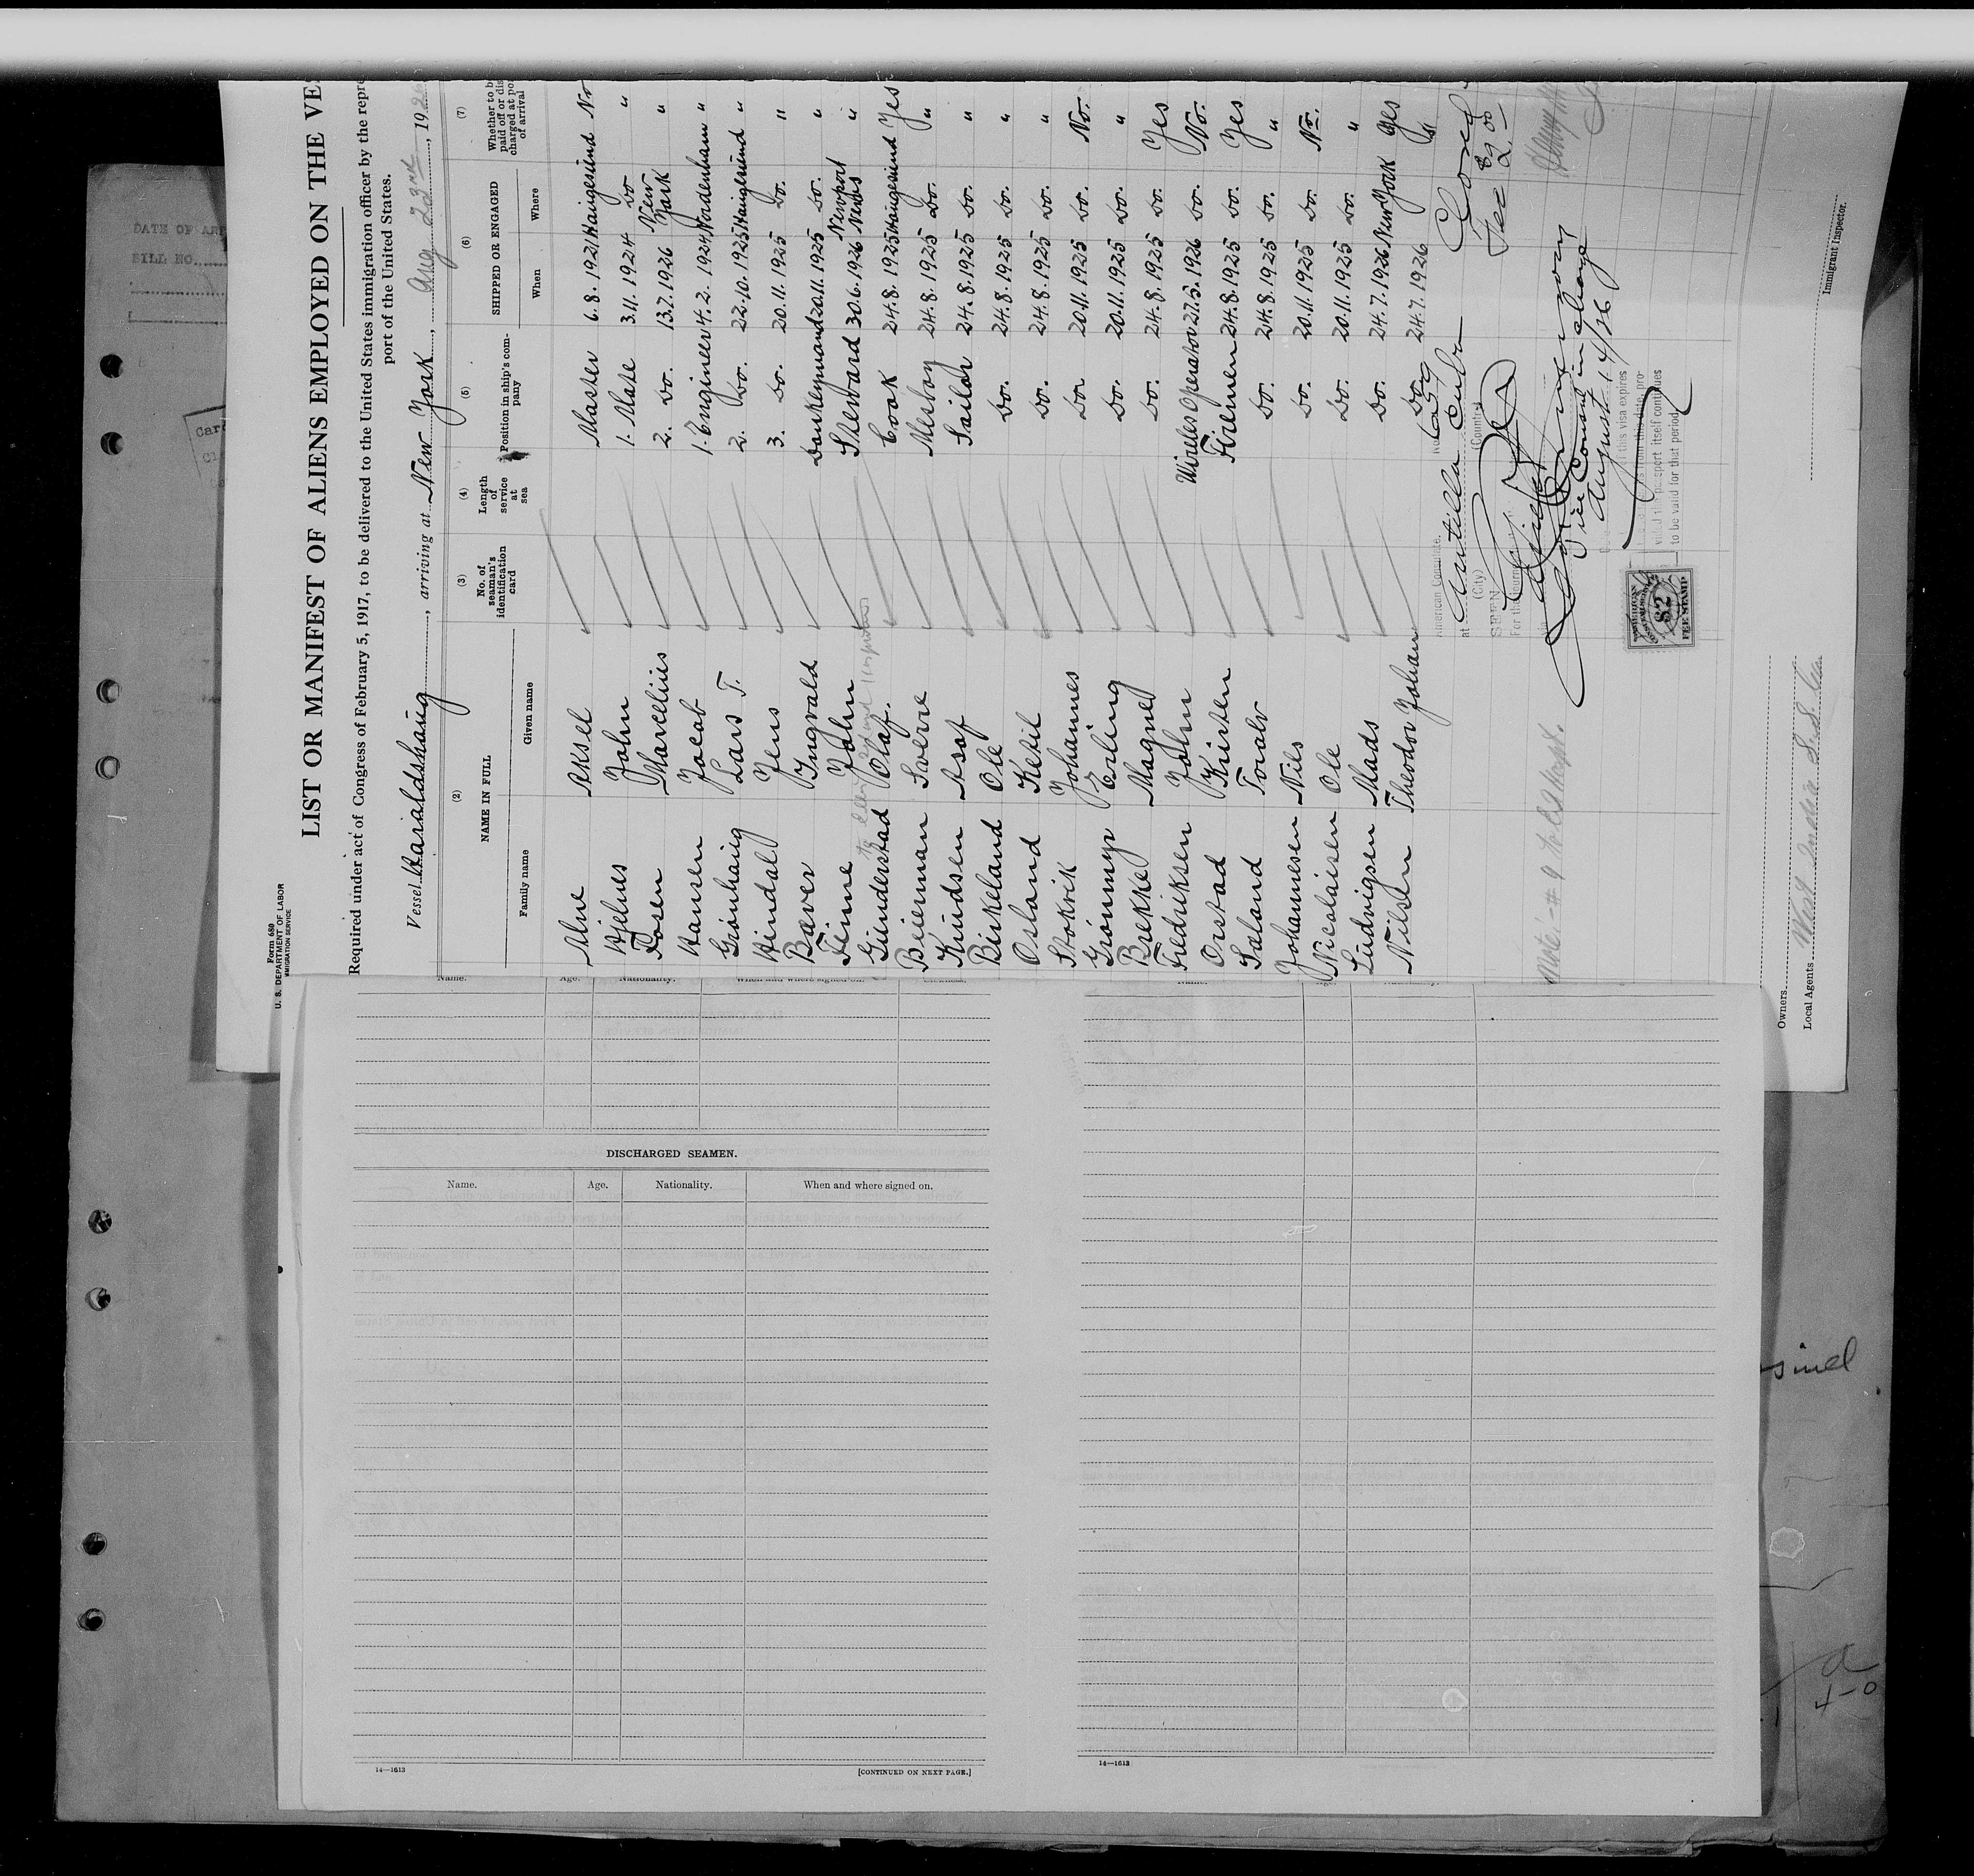 Form 680
U. S. DEPARTMENT OF LABOR
IMMIGRATION SERVICE
LIST OR MANIFEST OF ALIENS EMPLOYED ON THE VE
Required under act of Congress of February 5, 1917, to be delivered to the United States immigration officer by the repre
port of the United States.
Vessel Haraldshaug, arriving at New York, Aug 23rd, 192
(2) (3) (4) (5) (6) (7)
NAME IN FULL No. of seaman's identification card Length of service at sea Position in ship's company SHIPPED OR ENGAGED Whether to b paid off or dis charged at po of arrival
Family name Given name When Where
Alne Aksel Master 6.8.1921 Haugesund No
Hjelnes John 1. Mate 3.11.1924 Do. "
Rosen Marcelius 2. Do. 13.7.1926 New York "
Hansen Jacob 1. Engineer 4.2.1924 Nordenham "
Grönhaug Lars T. 2. Do. 22.10.1925 Haugesund "
Hindal Jens 3. Do. 20.11.1925 Do. "
Baever Ingvald Donkeymand 20.11.1925 Do. "
Finne John Steward 30.6.1926 Newport News "
Gunderstad Olaf. Cook 24.8.1925 Haugesund Yes
Beierman Sverre Mesboy 24.8.1925 Do. "
Knudsen Asof Sailor 24.8.1925 Do. "
Birkeland Ole Do. 24.8.1925 Do. "
Osland Ketil Do. 24.8.1925 Do. "
Stokvik Johannes Do 20.11.1925 Do. No.
Grönmyr Erling Do. 20.11.1925 Do. "
Brekke Magne Do. 24.8.1925 Do. Yes
Fredriksen John Wireles Operator 27.3.1926 Do. No.
Orstad Kristen Firemen 24.8.1925 Do. Yes
Saland Toralv Do. 24.8.1925 Do. "
Johannesen Nils Do. 20.11.1925 Do. No.
Nicolaisen Ole Do. 20.11.1925 Do. "
Ludvigsen Mads Do. 24.7.1926 New York Yes
Nilsen Theodor Johan Do. 24.7.1926 "
American Consulate,
at Antilla Cuba
(City) (Country)
SEEN
For the journ
Vice Consul in charge
August 14/26
this visa expires
from this date, pro-
vided the passport itself continues
to be valid for that period.
AMERICAN
CONSULAR SERVICE
$2
FEE STAMP
Fee $2.00
Note:- #9
Immigrant Inspector.
Owners
Local Agents West India S.S. Co
DATE OF ARR
BILL NO.
Card
Name. Age. Nationality. When and where signed on.
DISCHARGED SEAMEN.
Name. Age. Nationality. When and where signed on.
14—1613 [CONTINUED ON NEXT PAGE.]
14—1613